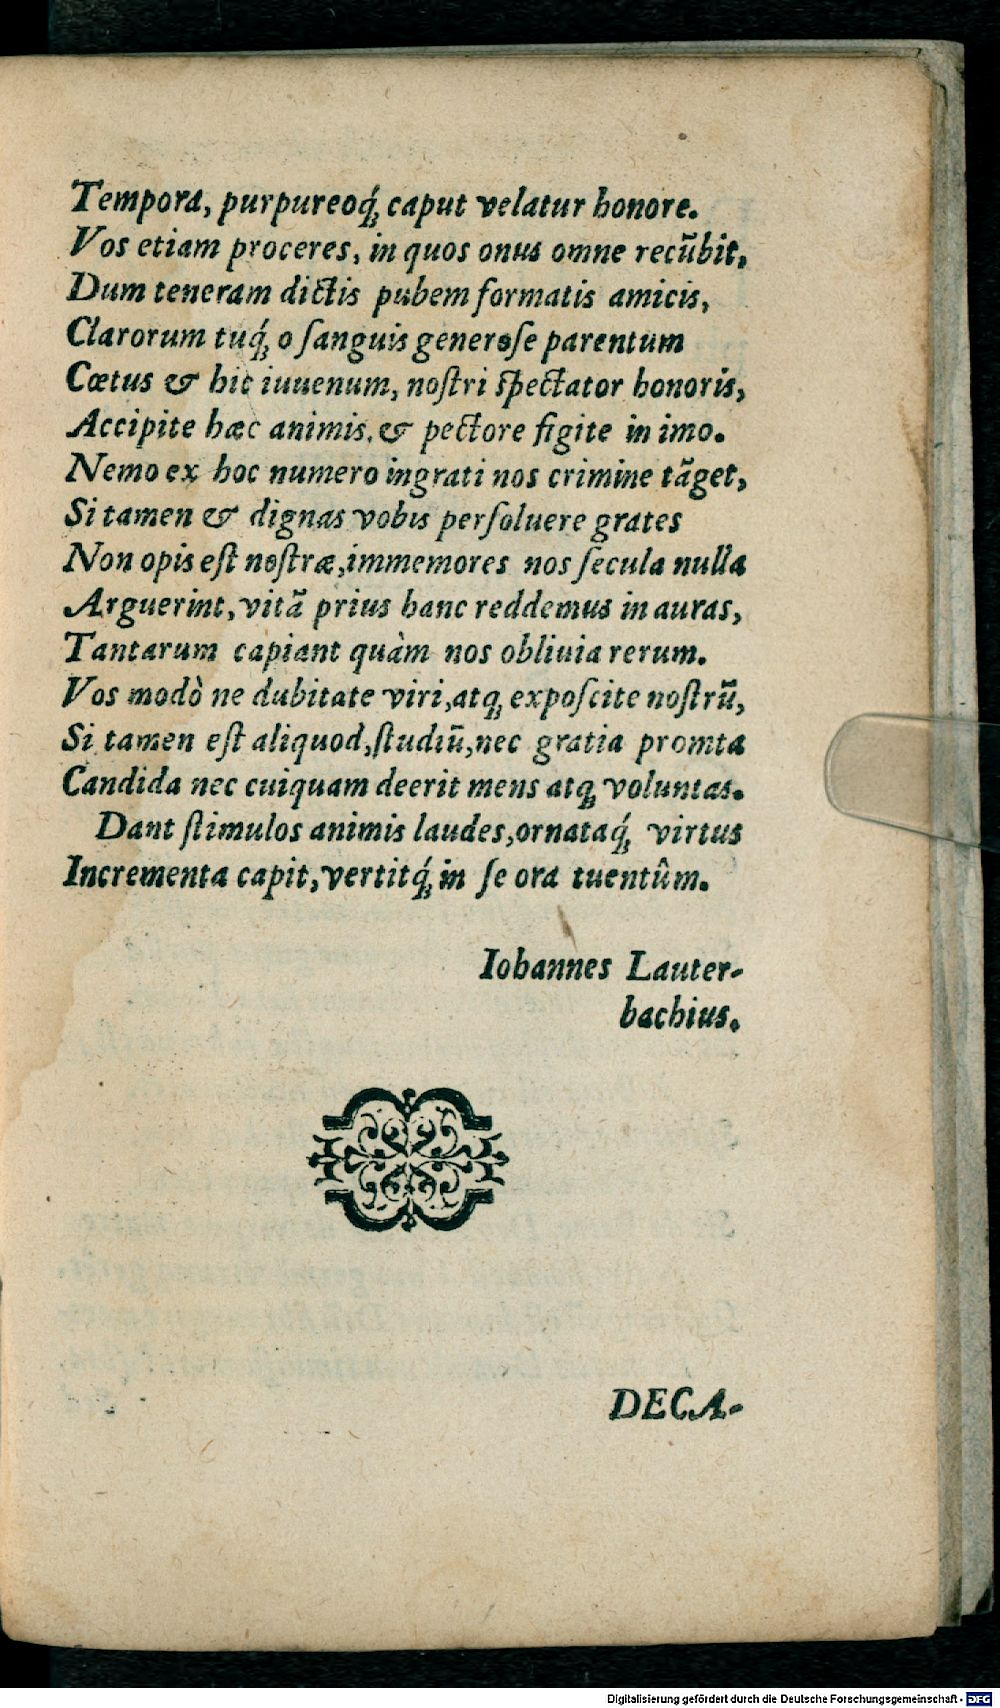 Tempora, purpureoq́; caput velatur honore.
Vos etiam proceres, in quos onus omne recũbit,
Dum teneram dictis pubem formatis amicis,
Clarorum tuq́; o ſanguis generoſe parentum
Cœtus & hic iuuenum, noſtri ſpectator honoris,
Accipite hæc animis, & pectore figite in imo.
Nemo ex hoc numero ingrati nos crimine tãget,
Si tamen & dignas vobis perſoluere grates
Non opis eſt noſtræ, immemores nos ſecula nulla
Arguerint, vitã prius hanc reddemus in auras,
Tantarum capiant quàm nos obliuia rerum.
Vos modò ne dubitate viri, atq; expoſcite noſtrũ,
Si tamen eſt aliquod, ſtudiũ, nec gratia promta
Candida nec cuiquam deerit mens atq; voluntas.
Dant ſtimulos animis laudes, ornataq́; virtus
Incrementa capit, vertitq́; in ſe ora tuentûm.
Iohannes Lauter-
bachius.
DECA-
Digitalisierung gefördert durch die Deutsche Forschungsgemeinschaft - DFG